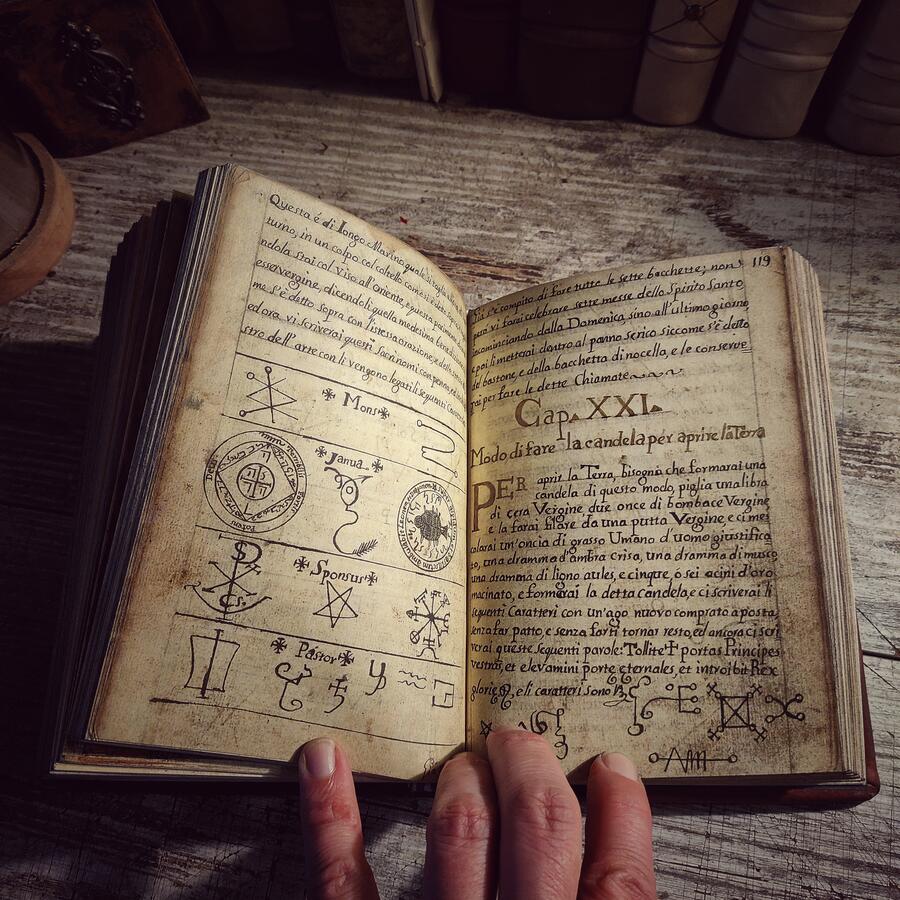 Questa é di longo Marino, quale si
turno, in un colpo col coltello come si è detto
ndola stai col viso all'oriente, e questa
esser vergine, dicendoli quella medesima
me s'è detto sopra con l'istessa orazione, e dello
ed ora vi scriverai questi sacri nomi con penna, ed
stro dell'arte con li vengono legati li seguenti
Mons
Janua
Sponsus
Pastor
119
s'e compito di fare tutte le sette bacchette; non
vi farai celebrare sette messe dello Spirito Santo,
incominciando dalla Domenica, sino all'ultimo giorno
e poi li metterai dentro al panno serico siccome s'è detto
del bastone, e della bacchetta di nocella, e le conserve_
rai per fare le dette Chiamate
Cap. XXI.
Modo di fare la candela per aprire la Terra
PER aprir la Terra, bisogna che formarai una
candela di questo modo, piglia una libra
di cera Vergine, due once di bombace Vergine
e la farai filare da una putta Vergine, e ci mes
colarai un'oncia di grasso Umano d'uomo giustifica
to, una dramma d'ambra crisa, una dramma di musco,
una dramma di ligno aules, e cinque, o sei acini d'oro
macinato, e formerai la detta candela, e ci scriverai li
seguenti Caratteri con un'ago nuovo comprato a posta,
senza far patto, e senza farti tornar resto, ed ancora ci scri
verai queste seguenti parole: Tollite ✝ portas Principes
vestras, et elevamini porte eternales, et introibit Rex
glorie, e li caratteri sono